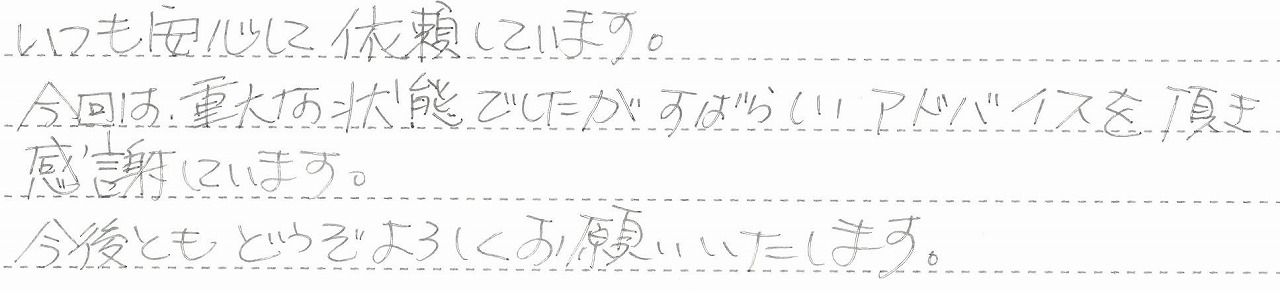 いつも安心して依頼しています。
今回は、重大な状態でしたがすばらしいアドバイスを頂き
感謝しています。
今後ともどうぞよろしくお願いいたします。